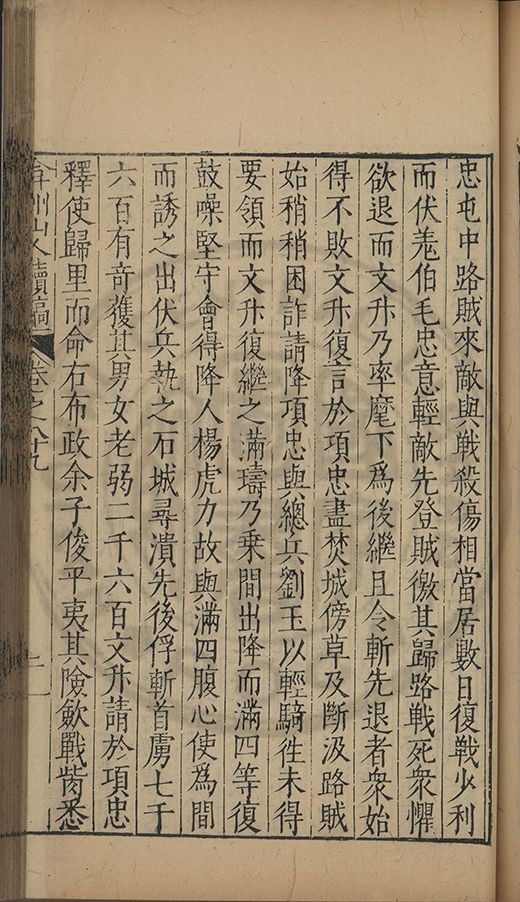 忠屯中路賊來敵與戰殺傷相當居數日復戰少利
而伏羌伯毛忠意輕敵先登賊徼其歸路戰死衆懼
欲退而文升乃率麾下爲後繼且令斬先退者衆始
得不敗文升復言於項忠盡焚城傍草及斷汲路賊
始稍稍困詐請降項忠與總兵劉玉以輕騎徃未得
要領而文升復繼之滿璹乃乗間出降而滿四等復
鼓噪堅守會得降人楊虎力故與滿四腹心使爲間
而誘之出伏兵執之石城尋潰先後俘斬首虜七千
六百有奇獲其男女老弱二千六百文升請於項忠
釋使歸里而命右布政余子俊平夷其險歛戰胔悉
弇州山人續稿 卷之八十九